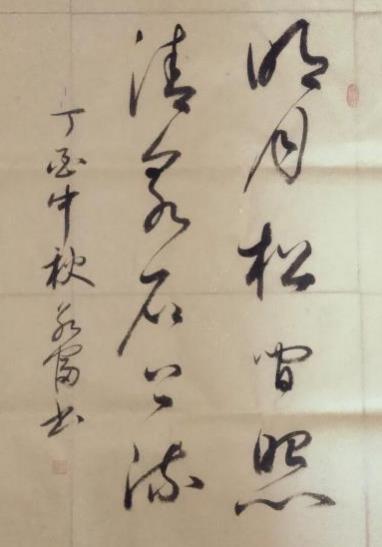 明月松間照
清泉石上流
丁酉中秋書